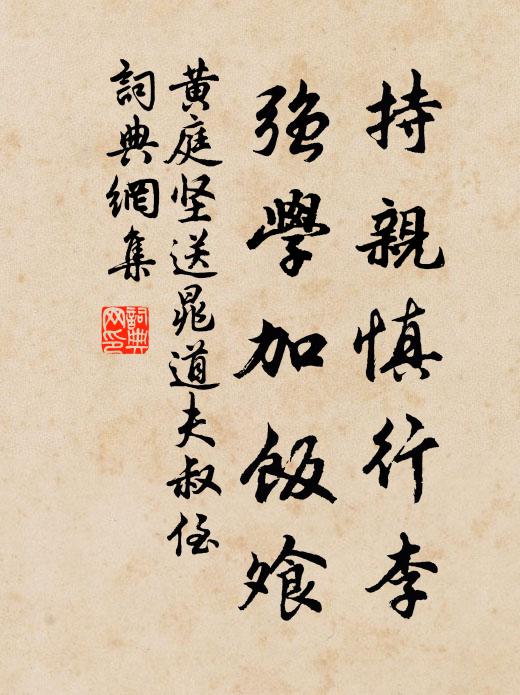 持親慎行李
強學加飯飧
黃庭坚送晁道夫叔侄
詞典網集
詞典网印